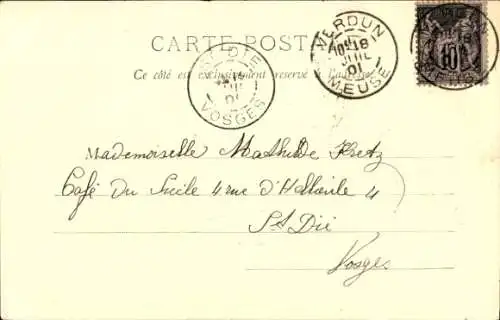 CARTE POSTALE
Ce côté est exclusivement réservé à l'adresse
ST DIÉ
VOSGES
VERDUN
18
JUIL
01
MEUSE
10
Mademoiselle Mathilde Kretz
Café du 4 rue d'Hellieule 4
St Dié
Vosges